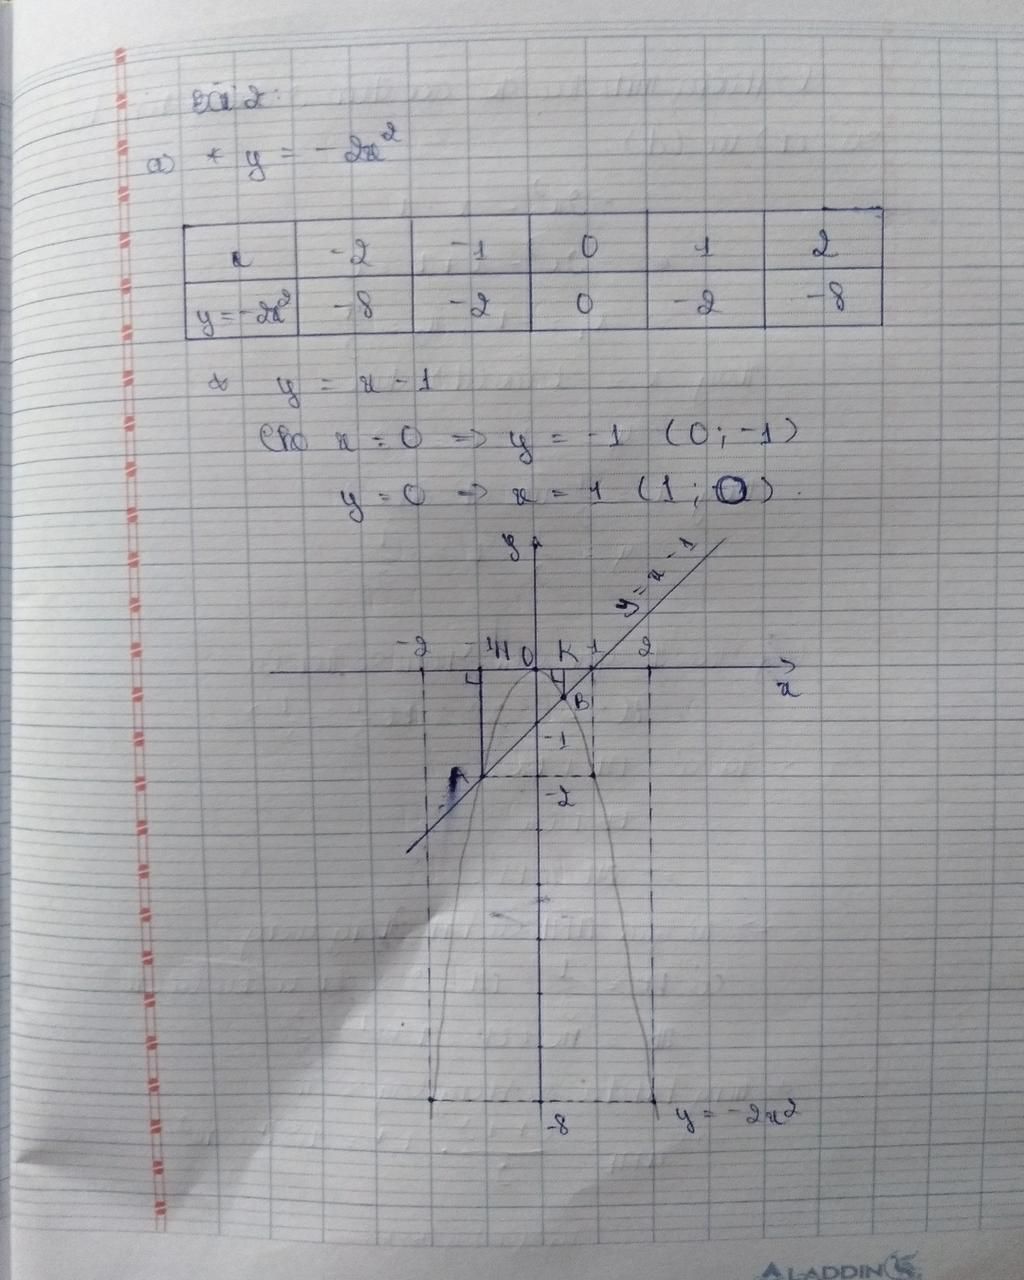 Bài 2:
a) * y = -2x²
x -2 -1 0 1 2
y=-2x² -8 -2 0 -2 -8
* y = x - 1
Cho x = 0 => y = -1 (0; -1)
y = 0 => x = 1 (1; 0).
y
y = x - 1
-2 -1 H O K 1 2
x
B
-1
A
-2
-8
y = -2x²
ALADDIN